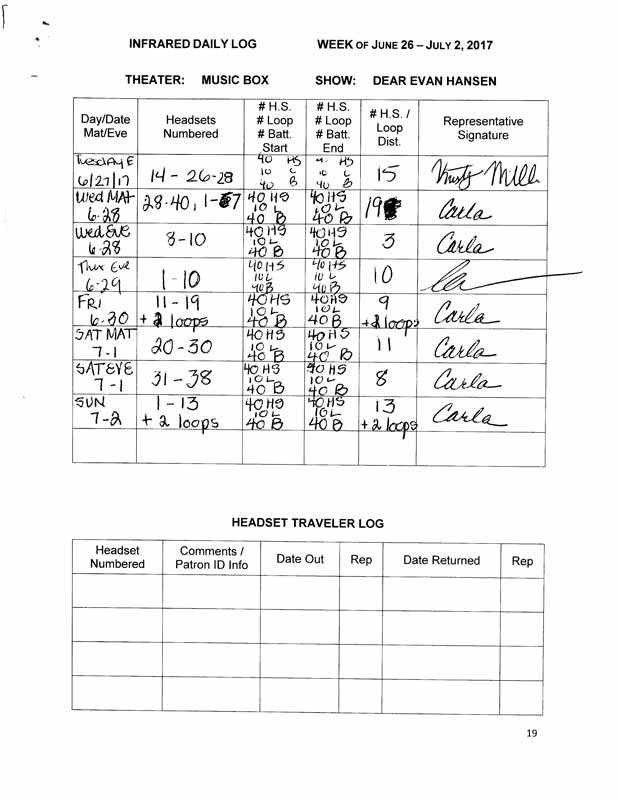 INFRARED DAILY LOG WEEK OF JUNE 26 – JULY 2, 2017
THEATER: MUSIC BOX SHOW: DEAR EVAN HANSEN
Day/Date Mat/Eve Headsets Numbered # H.S. # Loop # Batt. Start # H.S. # Loop # Batt. End # H.S. / Loop Dist. Representative Signature
Tuesday E 6/27/17 14 - 26-28 40 HS 10 L 40 B 40 HS 10 L 40 B 15
Wed MAT 6-28 28-40, 1-7 40 HS 10 L 40 B 40 HS 10 L 40 B 19 Carla
Wed Eve 6-28 8-10 40 HS 10 L 40 B 40 HS 10 L 40 B 3 Carla
Thur Eve 6-29 1-10 40 HS 10 L 40 B 40 HS 10 L 40 B 10
FRI 6-30 11-19 + 2 loops 40 HS 10 L 40 B 40 HS 10 L 40 B 9 + 2 loops Carla
SAT MAT 7-1 20-30 40 HS 10 L 40 B 40 HS 10 L 40 B 11 Carla
SAT EVE 7-1 31-38 40 HS 10 L 40 B 40 HS 10 L 40 B 8 Carla
SUN 7-2 1-13 + 2 loops 40 HS 10 L 40 B 40 HS 10 L 40 B 13 + 2 loops Carla
HEADSET TRAVELER LOG
Headset Numbered Comments / Patron ID Info Date Out Rep Date Returned Rep
19